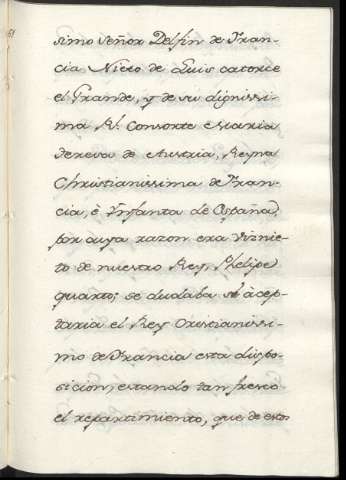 simo Señor Delfin de Fran-
cia Nieto de Luis catorce
el Grande, y de su dignissi-
ma Rl. Consorte Maria
Teresa de Austria, Reyna
Christianissima de Fran-
cia, è Ynfanta de España,
por cuya razon era Viznie-
to de nuestro Rey Phelipe
quarto; se dudaba si àcep-
taria el Rey Cristianissi-
mo de Francia esta dispo-
sicion, estando tan fresco
el repartimiento, que de estos